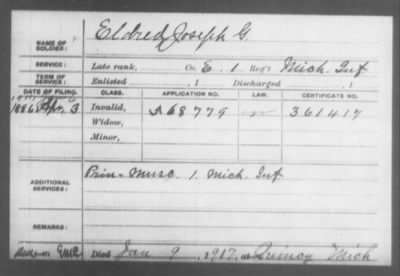 NAME OF SOLDIER: Eldred, Joseph G.
SERVICE: Late rank, Co. E. 1 Reg't Mich. Inf
TERM OF SERVICE: Enlisted , 1 Discharged , 1
DATE OF FILING. CLASS. APPLICATION NO. LAW. CERTIFICATE NO.
1886 Apr. 3 Invalid, 568779 361417
Widow,
Minor,
ADDITIONAL SERVICES: Prin. Musc. 1 Mich. Inf
REMARKS:
Died Jan 9, 1917, at Quincy Mich